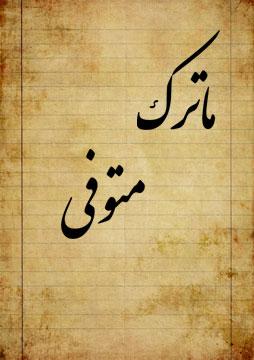 ماترک
متوفی